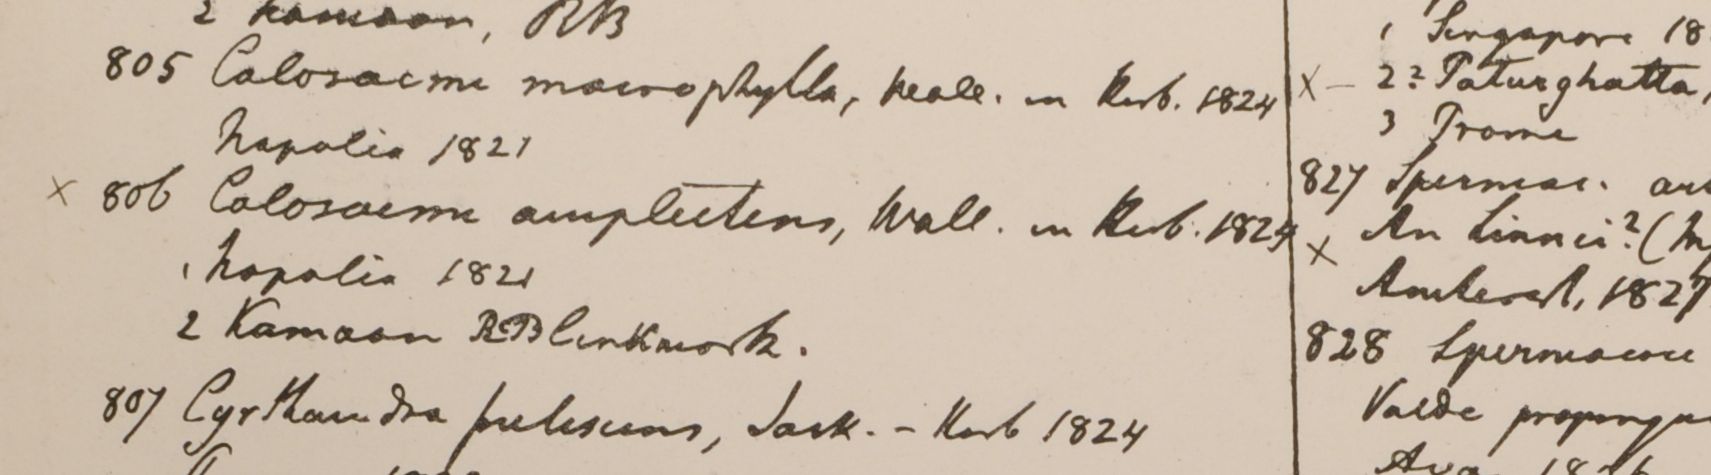 2 Kamaon, RB
805 Calosacme macrophylla, Wall. in Herb. 1824
Napalia 1821
× 806 Calosacme amplectens, Wall. in Herb. 1824
1 Napalia 1821
2 Kamaon RBlinkwork.
807 Cyrthandra pubescens, Jack. - Herb 1824
1 Singapore 18
× - 2? Paturghatta,
3 Prome
827 Spermac.
× An Linnei? (
Amherst, 1827
828 Spermacoce
Valde propinqu
Ava